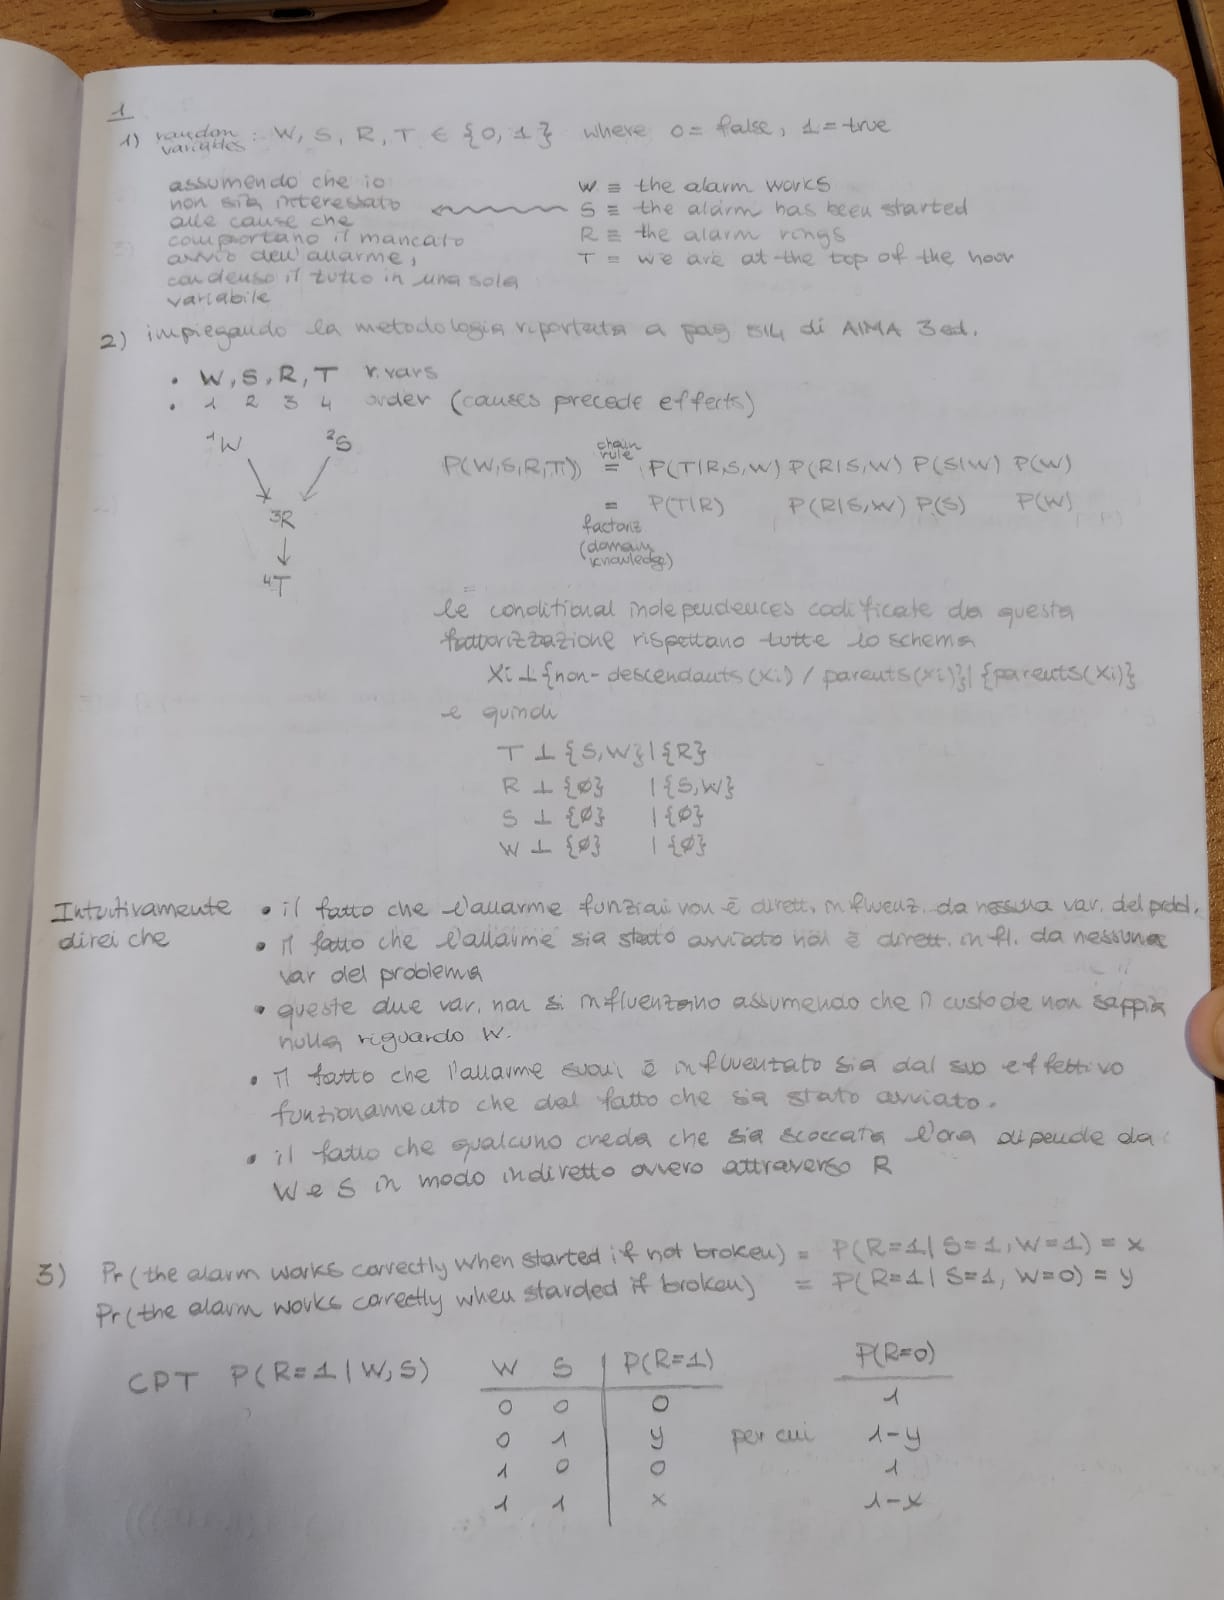 1
1) random variables : W, S, R, T ∈ {0, 1} where 0 = false, 1 = true
assumendo che io
non sia interessato
alle cause che
comportano il mancato
avvio dell'allarme,
condenso il tutto in una sola
variabile
W ≡ the alarm works
S ≡ the alarm has been started
R ≡ the alarm rings
T = we are at the top of the hoor
2) impiegando la metodologia riportata a pag 514 di AIMA 3 ed.
• W, S, R, T r.vars
• 1 2 3 4 order (causes precede effects)
1W 2S
3R
4T
P(W,S,R,T) chain rule = P(T|R,S,W) P(R|S,W) P(S|W) P(W)
= P(T|R) P(R|S,W) P(S) P(W)
factoriz
(domain
knowledge)
le conditional independences codificate da questa
fattorizzazione rispettano tutte lo schema
Xi ⊥ {non-descendants(Xi) / parents(Xi)} | {parents(Xi)}
e quindi
T ⊥ {S,W} | {R}
R ⊥ {∅} | {S,W}
S ⊥ {∅} | {∅}
W ⊥ {∅} | {∅}
Intuitivamente
direi che
• il fatto che l'allarme funzioni non è dirett. influenz. da nessuna var. del probl.
• il fatto che l'allarme sia stato avviato non è dirett. infl. da nessuna
var del problema
• queste due var. non si influenzano assumendo che il custode non sappia
nulla riguardo W.
• il fatto che l'allarme suoni è influentato sia dal suo effettivo
funzionamento che dal fatto che sia stato avviato.
• il fatto che qualcuno creda che sia scoccata l'ora dipende da
W e S in modo indiretto ovvero attraverso R
3) Pr (the alarm works correctly when started if not broken) = P(R=1| S=1, W=1) = x
Pr (the alarm works correctly when starded if broken) = P(R=1 | S=1, W=0) = y
CPT P(R=1 | W,S)
W S | P(R=1) P(R=0)
0 0 | 0 1
0 1 | y per cui 1-y
1 0 | 0 1
1 1 | x 1-x